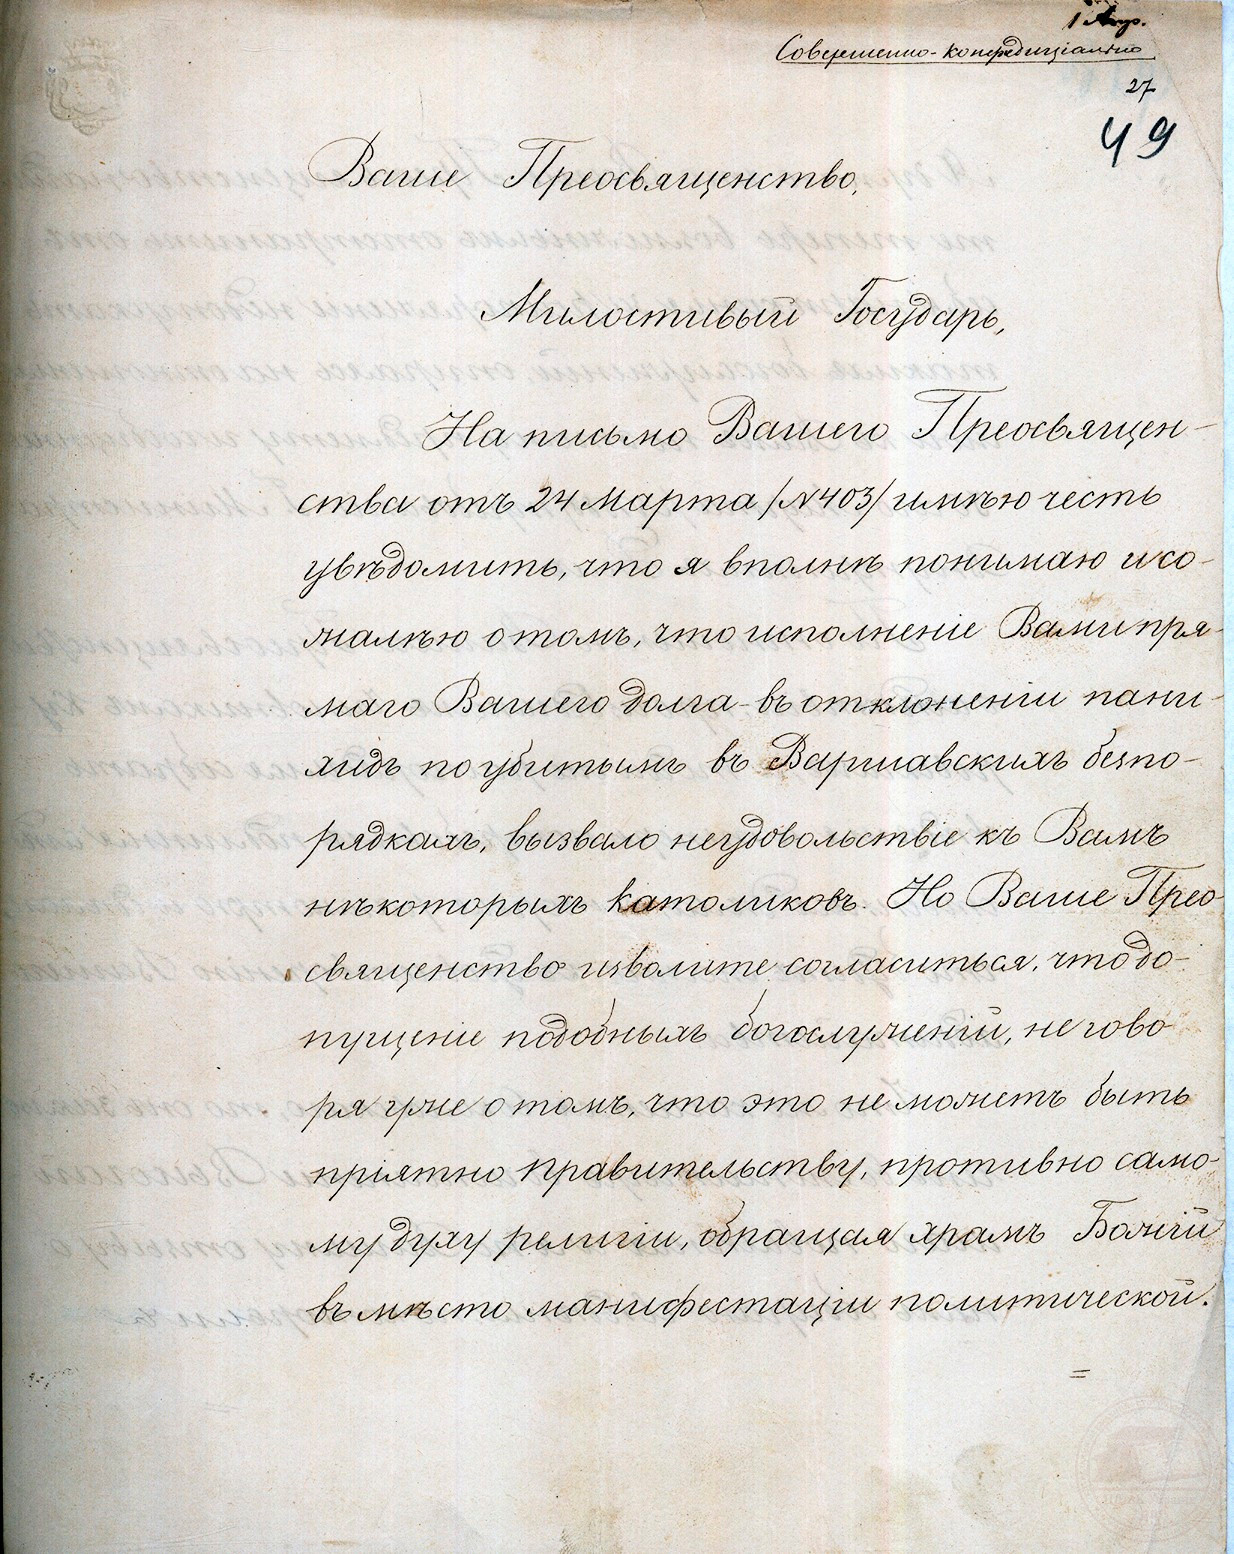 1 Апр.
Совершенно-конфиденціально
27
49
Ваше Преосвященство,
Милостивый Государь,
На письмо Вашего Преосвящен-
ства отъ 24 марта /N 403/ имѣю честь
увѣдомить, что я вполнѣ понимаю и со-
жалѣю о томъ, что исполненіе Вами пря-
маго Вашего долга - въ отклоненіи пани-
хидъ по убитымъ въ Варшавскихъ безпо-
рядкахъ, вызвало неудовольствіе къ Вамъ
нѣкоторыхъ католиковъ. Но Ваше Прео-
священство изволите согласиться, что до-
пущеніе подобныхъ богослуженій, не гово-
ря уже о томъ, что это не можетъ быть
пріятно правительству, противно само-
му духу религіи, обращая храмъ Божій
въ мѣсто манифестаціи политической.
=